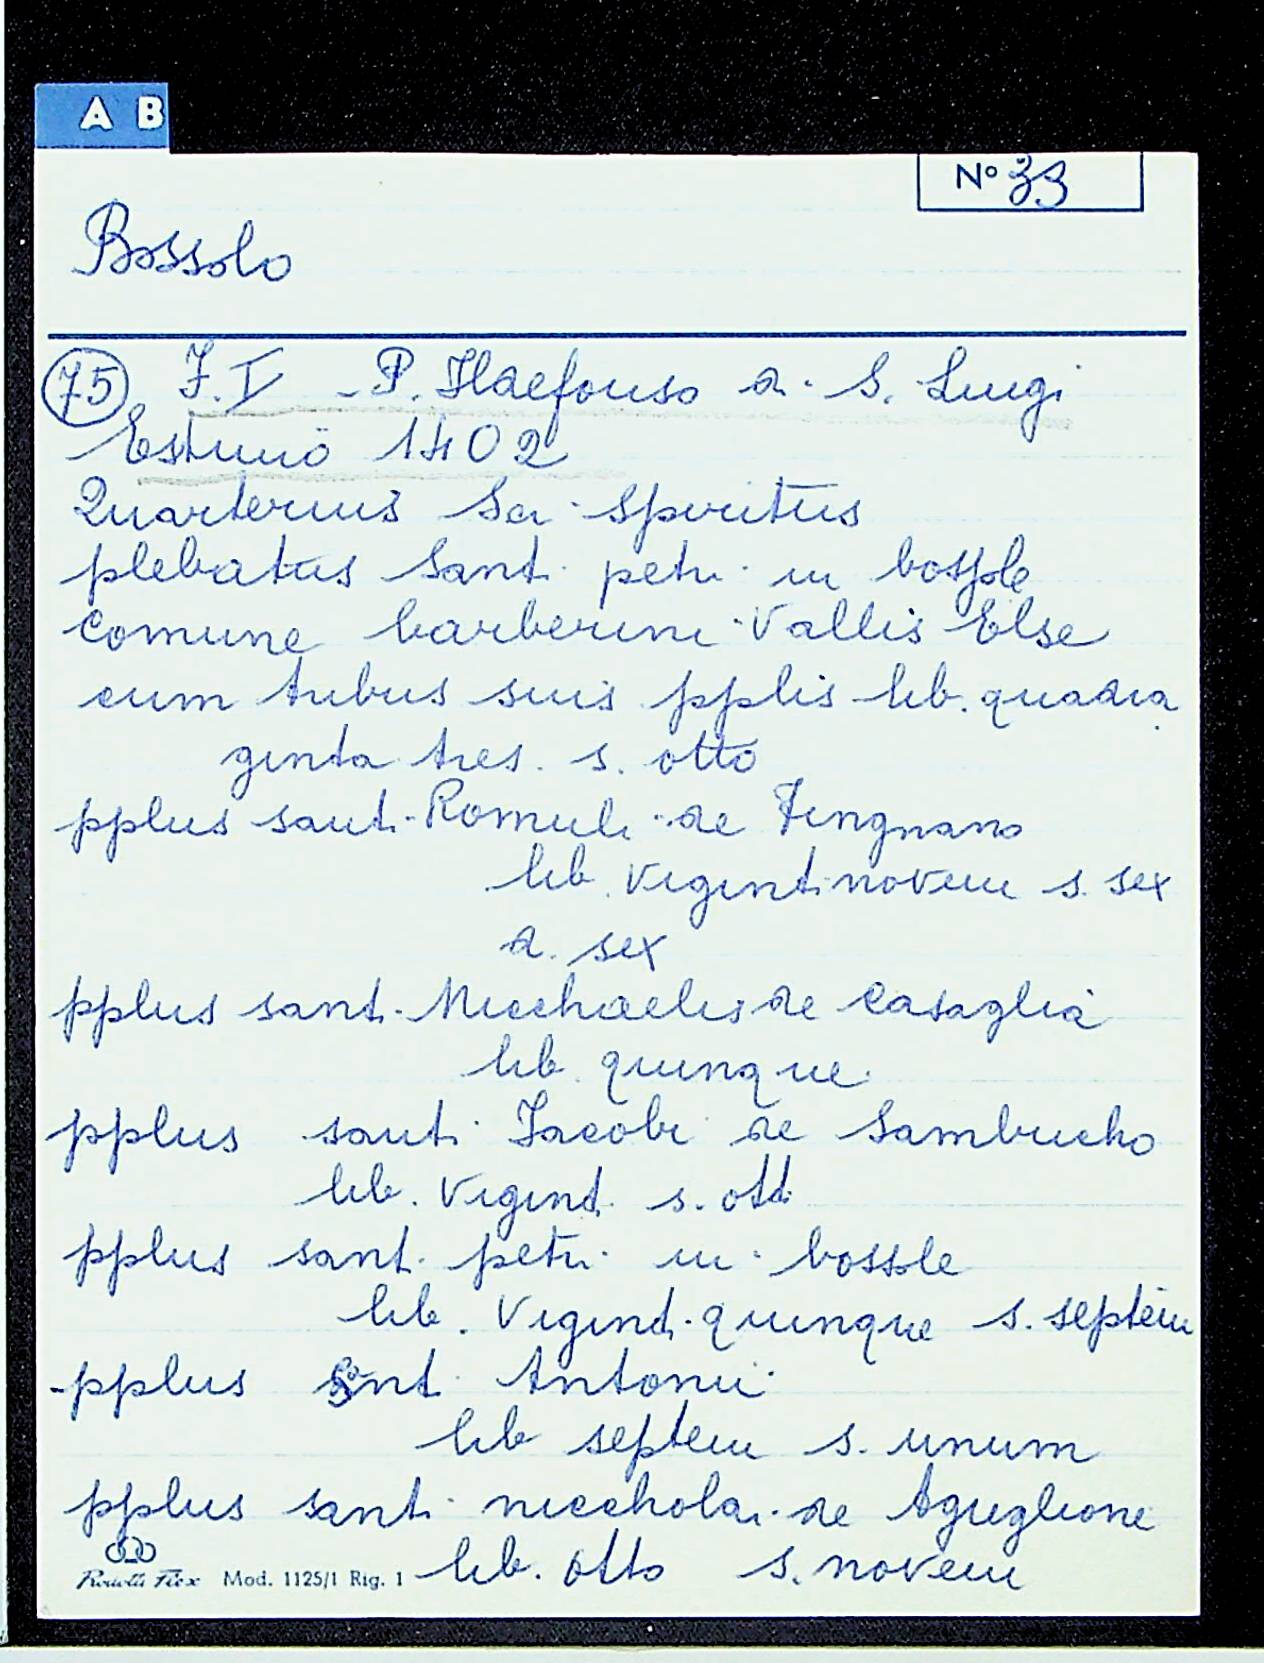 A B
N° 39
Bossolo
75 F. V - P. Ildefonso a. S. Luigi
Estimo 1402
Quarterius Sci Spiritus
plebatus Sant. petri in bossole
Comune barberini Vallis Else
cum tribus suis pplis lib. quadra
ginta tres. s. otto
pplus sant. Romuli de Tingnano
lib. vigint. novem s. sex
d. sex
pplus sant. Micchaelis de Casaglia
lib. quinque.
pplus sant. Jacobi de Sambucho
lib. Vigint. s. ott.
pplus sant. petri in bossole
lib. Vigint. quinque s. septem
-pplus Sant. Antonii
lib septem s. unum
pplus sant. niccholai de Aguglione
Mod. 1125/1 Rig. 1 lib. otto s. novem